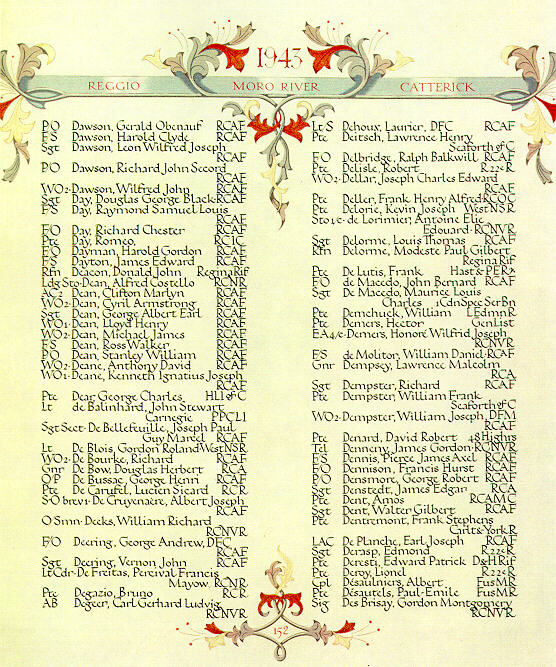 1943
REGGIO MORO RIVER CATTERICK
P/O Dawson, Gerald Obenauf RCAF
F/S Dawson, Harold Clyde RCAF
Sgt Dawson, Leon Wilfred Joseph
RCAF
P/O Dawson, Richard John Secord
RCAF
WO2 Dawson, Wilfred John RCAF
Sgt Day, Douglas George Black RCAF
F/S Day, Raymond Samuel Louis
RCAF
F/O Day, Richard Chester RCAF
Pte Day, Romeo, RCIC
F/O Dayman, Harold Gordon RCAF
F/S Dayton, James Edward RCAF
Rfn Deacon, Donald John Regina Rif
Ldg Sto Dean, Alfred Costello RCNR
AC2 Dean, Clifton Marlyn RCAF
WO2 Dean, Cyril Armstrong RCAF
Sgt Dean, George Albert Earl RCAF
WO1 Dean, Lloyd Henry RCAF
WO2 Dean, Michael, James RCAF
F/S Dean, Ross Walker RCAF
P/O Dean, Stanley William RCAF
WO2 Deane, Anthony David RCAF
WO1 Deane, Kenneth Ignatius Joseph
RCAF
Pte Dear, George Charles HLI of C
Lt de Balinhard, John Stewart
Carnegie PPCLI
Sgt Sect De Bellefeuille, Joseph Paul
Guy Marcel RCAF
Lt De Blois, Gordon Roland West NSR
WO2 De Bourke, Richard RCAF
Gnr De Bow, Douglas Herbert RCA
O/P De Bussac, George Henri RCAF
Pte De Carufel, Lucien Sicard RCR
S/O brev De Cruyenaere, Albert Joseph
RCAF
O Smn Decks, William Richard
RCNVR
F/O Deering, George Andrew, DFC
RCAF
Sgt Deering, Vernon John RCAF
Lt Cdr De Freitas, Percival Francis
Mayow, RCNR
Pte Degazio, Bruno RCR
AB Degeer, Carl Gerhard Ludvig
RCNVR
Lt S Dehoux, Laurier, DFC RCAF
Pte Deitsch, Lawrence Henry
Seaforth of C
F/O Delbridge, Ralph Balkwill RCAF
Pte Delisle, Robert R22eR
WO2 Dellar, Joseph Charles Edward
RCAF
Pte Deller, Frank Henry Alfred RCOC
Pte Delorie, Kevin Joseph West NSR
Sto 1/c de Lorimier, Antoine Elie
Edouard RCNVR
Sgt Delorme, Louis Thomas RCAF
Rfn Delorme, Modeste Paul Gilbert
Regina Rif
Pte De Lutis, Frank Hast & PER
F/O de Macedo, John Bernard RCAF
Sgt De Macedo, Maurice Louis
Charles 1 Cdn Spec Ser Bn
Pte Demchuck, William LEdmnR
Pte Demers, Hector Gen List
EA4/c Demers, Honoré Wilfrid Joseph
RCNVR
F/S de Molitor, William Daniel RCAF
Gnr Dempsey, Lawrence Malcolm
RCA
Sgt Dempster, Richard RCAF
Pte Dempster, William Frank
Seaforth of C
WO2 Dempster, William Joseph, DFM
RCAF
Pte Denard, David Robert 48 Highrs
Tel Denneny, James Gordon RCNVR
F/S Dennis, Pierce James Axel RCAF
F/O Dennison, Francis Hurst RCAF
P/O Densmore, George Robert RCAF
Sgt Denstedt, James Edgar RCA
Pte Dent, Amos RCAMC
Sgt Dent, Walter Gilbert RCAF
Pte Dentremont, Frank Stephens
Carlt & York R
LAC De Planche, Earl Joseph RCAF
Sgt Derasp, Edmond R22eR
Pte Deresti, Edward Patrick D&H Rif
Pte Deroy, Lionel R22eR
Cpl Désaulniers, Albert Fus MR
Pte Désautels, Paul-Emile Fus MR
Sig Des Brisay, Gordon Montgomery
RCNVR
152